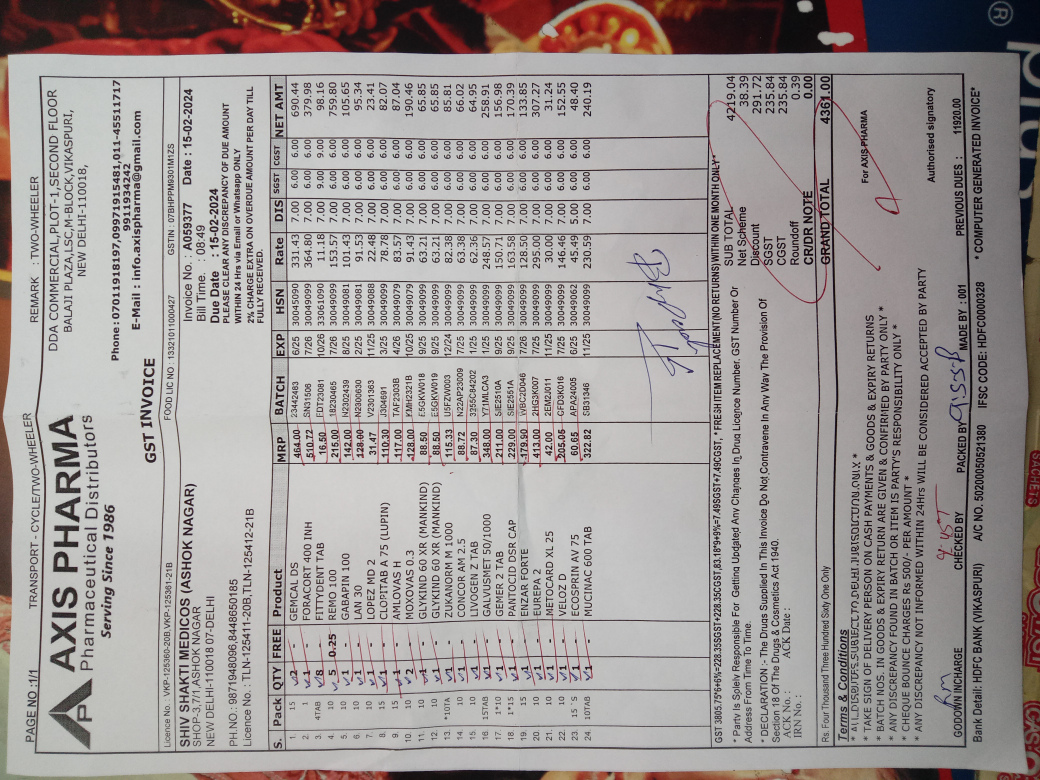 PAGE NO :1/1 TRANSPORT - CYCLE/TWO-WHEELER REMARK : TWO-WHEELER
AXIS PHARMA
Pharmaceutical Distributors
Serving Since 1986
DDA COMMERCIAL,PLOT-1,SECOND FLOOR
BALAJI PLAZA,LSC,M-BLOCK,VIKASPURI,
NEW DELHI-110018,
Phone: 07011918197,09971915481,011-45511717
9911934242
E-Mail : info.axispharma@gmail.com
GST INVOICE
Licence No. VKP-125360-20B,VKP-125361-21B FOOD LIC NO : 13321011000427 GSTIN : 07BHPPM9301M1ZS
SHIV SHAKTI MEDICOS (ASHOK NAGAR)
SHOP-3,7/1,ASHOK NAGAR
NEW DELHI-110018 07-DELHI
PH.NO.: 9871948096,8448650185
Licence No : TLN-125411-20B,TLN-125412-21B
Invoice No. : A059377 Date : 15-02-2024
Bill Time. : 08:49
Due Date : 15-02-2024
PLEASE CLEAR ANY DISCREPANCY OF DUE AMOUNT
WITHIN 24 Hrs via Email or Whatsapp ONLY
2% CHARGE EXTRA ON OVERDUE AMOUNT PER DAY TILL
FULLY RECEIVED.
S. Pack QTY FREE Product MRP BATCH EXP HSN Rate DIS SGST CGST NET AMT
1. 15 2 - GEMCAL DS 464.00 23442463 6/25 30045090 331.43 7.00 6.00 6.00 690.44
2. 1 1 - FORACORT 400 INH 510.72 SN31506 7/26 30049099 364.80 7.00 6.00 6.00 379.98
3. 4TAB 8 - FITTYDENT TAB 16.50 FDT23081 10/26 33061099 11.18 7.00 9.00 9.00 98.16
4. 10 5 0.25 REMO 100 215.00 18230465 7/26 30049099 153.57 7.00 6.00 6.00 759.80
5. 10 1 - GABAPIN 100 142.00 N2302439 8/25 30049081 101.43 7.00 6.00 6.00 105.65
6. 10 1 - LAN 30 128.00 N2300630 2/25 30049081 91.53 7.00 6.00 6.00 95.34
7. 10 1 - LOPEZ MD 2 31.47 V2301363 11/25 30049088 22.48 7.00 6.00 6.00 23.41
8. 15 1 - CLOPITAB A 75 (LUPIN) 110.30 J304691 3/25 30049099 78.78 7.00 6.00 6.00 82.07
9. 10 1 - AMLOVAS H 117.00 TAF2303B 4/26 30049079 83.57 7.00 6.00 6.00 87.04
10. 10 2 - MOXOVAS 0.3 128.00 KMH2321B 10/25 30049079 91.43 7.00 6.00 6.00 190.46
11. 10 1 - GLYKIND 60 XR (MANKIND) 88.50 E5GKW018 9/25 30049099 63.21 7.00 6.00 6.00 65.85
12. 10 1 - GLYKIND 60 XR (MANKIND) 88.50 E5GKW019 9/25 30049099 63.21 7.00 6.00 6.00 65.85
13. *10TA 1 - ZUKANORM M 1000 115.33 U5FZW003 12/24 30049099 82.38 7.00 6.00 6.00 85.81
14. 10 1 - CONCOR AM 2.5 88.72 N22AP23009 7/25 30049099 63.38 7.00 6.00 6.00 66.02
15. 10 1 - LIVOGEN Z TAB 87.30 3255C84202 1/25 30049099 62.36 7.00 6.00 6.00 64.95
16. 15TAB 1 - GALVUSMET 50/1000 348.00 Y71MLCA3 1/25 30049099 248.57 7.00 6.00 6.00 258.91
17. 1*10 1 - GEMER 2 TAB 211.00 SIE2510A 9/25 30049099 150.71 7.00 6.00 6.00 156.98
18. 1*15 1 - PANTOCID DSR CAP 229.00 SIE2551A 9/25 30049099 163.58 7.00 6.00 6.00 170.39
19. 10 1 - ENZAR FORTE 179.90 WBC2D046 7/26 30049099 128.50 7.00 6.00 6.00 133.85
20. 10 1 - EUREPA 2 413.00 2HG3K007 8/26 30049099 295.00 7.00 6.00 6.00 307.27
21. 10 1 - METOCARD XL 25 42.00 2EM2J011 11/25 30049099 30.00 7.00 6.00 6.00 31.24
22. 10 1 - VELOZ D 205.05 CFD3K016 7/26 30049099 146.46 7.00 6.00 6.00 152.55
23. 15 'S 1 - ECOSPRIN AV 75 60.65 APA24005 6/25 30049062 45.49 5.00 6.00 6.00 48.40
24. 10TAB 1 - MUCINAC 600 TAB 322.82 SB31346 11/25 30049099 230.59 7.00 6.00 6.00 240.19
GST 3805.75*6+6%=228.35SGST+228.35CGST,83.18*9+9%=7.49SGST+7.49CGST, *FRESH ITEM REPLACEMENT(NO RETURNS)WITHIN ONE MONTH ONLY*
* Party Is Solely Responsible For Getting Updated Any Changes In Drug Licence Number. GST Number Or
Address From Time To Time.
* DECLARATION :- The Drugs Supplied In This Invoice Do Not Contravene In Any Way The Provision Of
Section 18 Of The Drugs & Cosmetics Act 1940.
ACK No : ACK Date :
IRN No :
SUB TOTAL 4219.04
Net Scheme 38.39
Discount 291.72
SGST 235.84
CGST 235.84
Roundoff 0.39
CR/DR NOTE 0.00
GRAND TOTAL 4361.00
Rs. Four Thousand Three Hundred Sixty One Only
Terms & Conditions
* ALL DISPUTES SUBJECT TO DELHI JURISDICTION ONLY *
* TAKE SIGN OF DELIVERY PERSON ON CASH PAYMENTS & GOODS & EXPIRY RETURNS
* BATCH NOS. IN GOODS & EXPIRY RETURN ARE GIVEN & CONFIRMED BY PARTY ONLY *
* ANY DISCREPANCY FOUND IN BATCH OR ITEM IS PARTY'S RESPONSIBILITY ONLY *
* CHEQUE BOUNCE CHARGES Rs 500/- PER AMOUNT *
* ANY DISCREPANCY NOT INFORMED WITHIN 24Hrs WILL BE CONSIDERED ACCEPTED BY PARTY
For AXIS PHARMA
Authorised signatory
GODOWN INCHARGE CHECKED BY PACKED BY MADE BY : 001 PREVIOUS DUES : 11920.00
Bank Detail: HDFC BANK (VIKASPURI) A/C NO. 50200050521380 IFSC CODE: HDFC0000328 * COMPUTER GENERATED INVOICE*
SACHETS
®